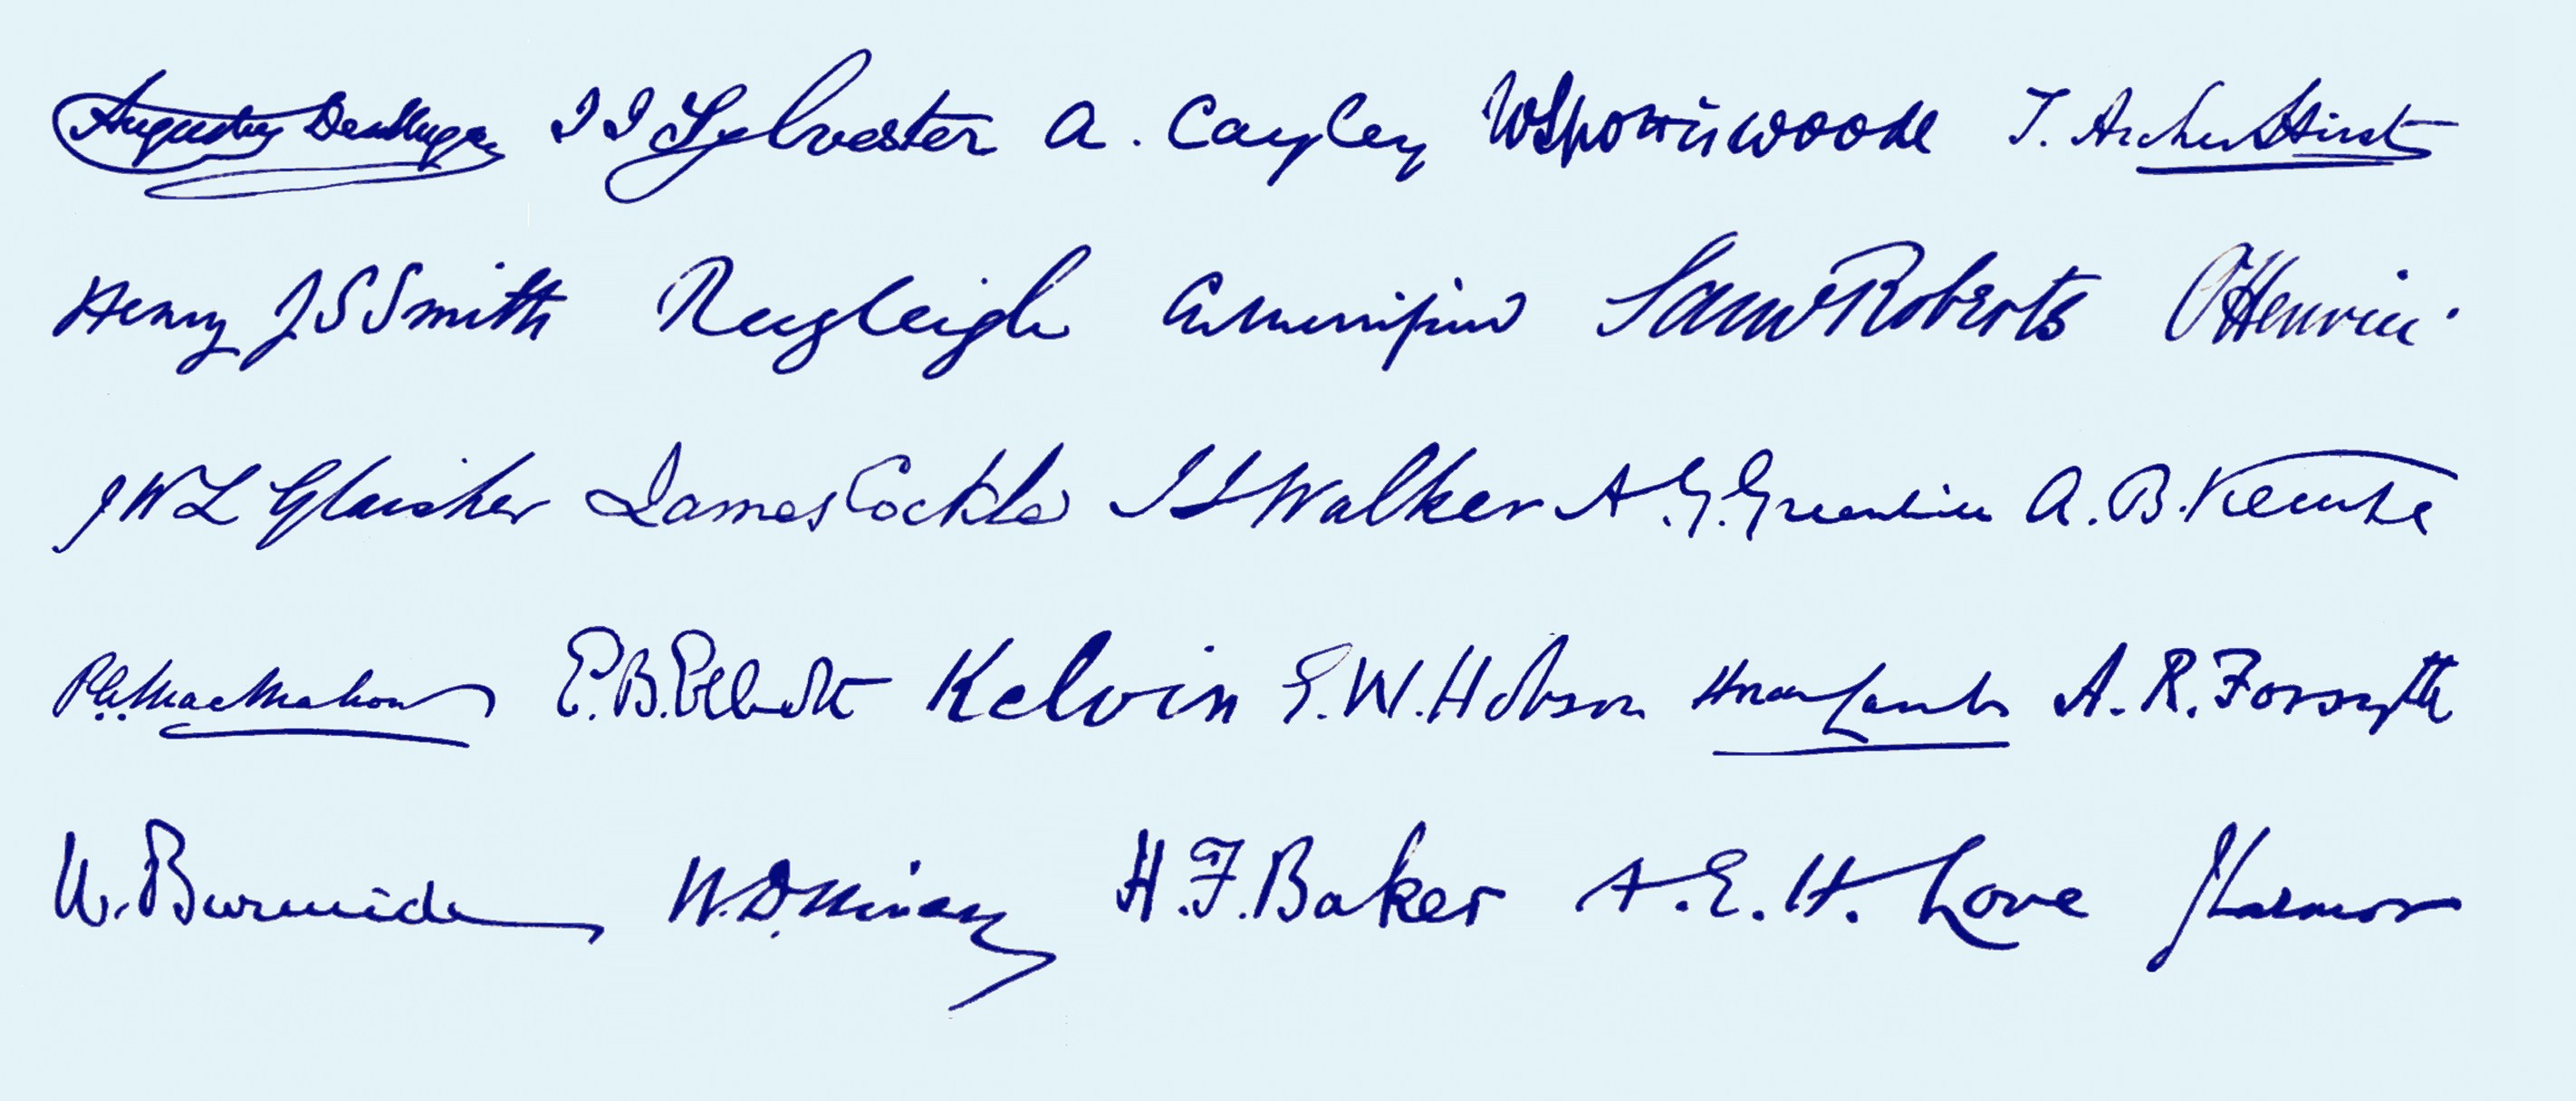 Augustus DeMorgan J J Sylvester A. Cayley W Spottiswoode T. Archer Hirst
Henry J S Smith Rayleigh C W Merrifield Saml Roberts O Henrici
J W L Glaisher James Cockle J J Walker A. G. Greenhill A. B. Kempe
P. A. MacMahon E. B. Elliott Kelvin E. W. Hobson Horace Lamb A. R. Forsyth
W. Burnside W. D. Niven H. F. Baker A. E. H. Love J Larmor